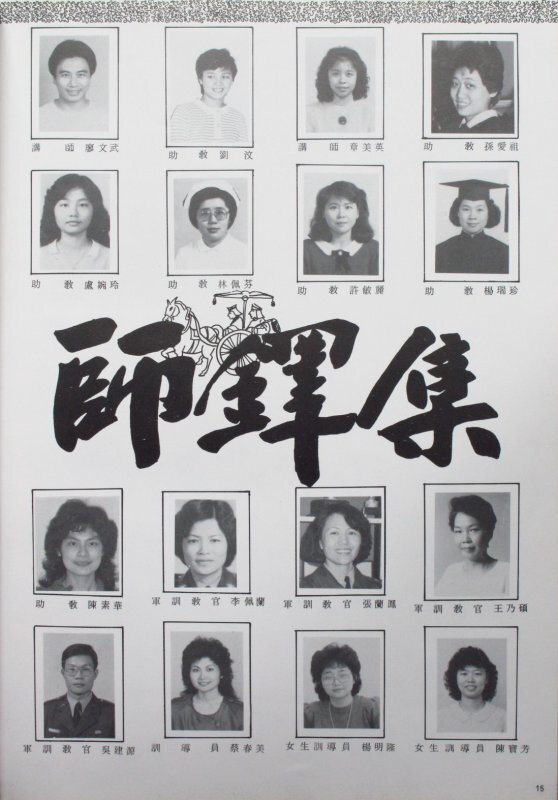 講師 廖文武
助教 劉汶
講師 章美英
助教 孫愛祖
助教 盧婉玲
助教 林佩芬
助教 許敏麗
助教 楊瑞珍
師鐸集
助教 陳素華
軍訓教官 李佩蘭
軍訓教官 張蘭鳳
軍訓教官 王乃碩
軍訓教官 吳建源
訓導員 蔡春美
女生訓導員 楊明隆
女生訓導員 陳寶芳
15